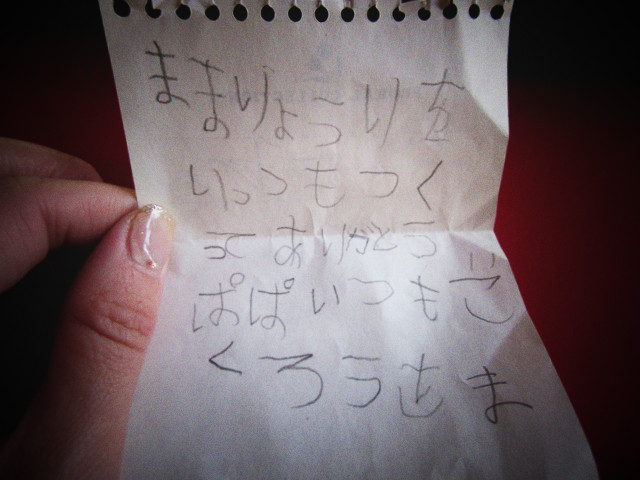 ままりょうりを
いっつもつく
ってありがとう
ぱぱいつもご
くろうさま